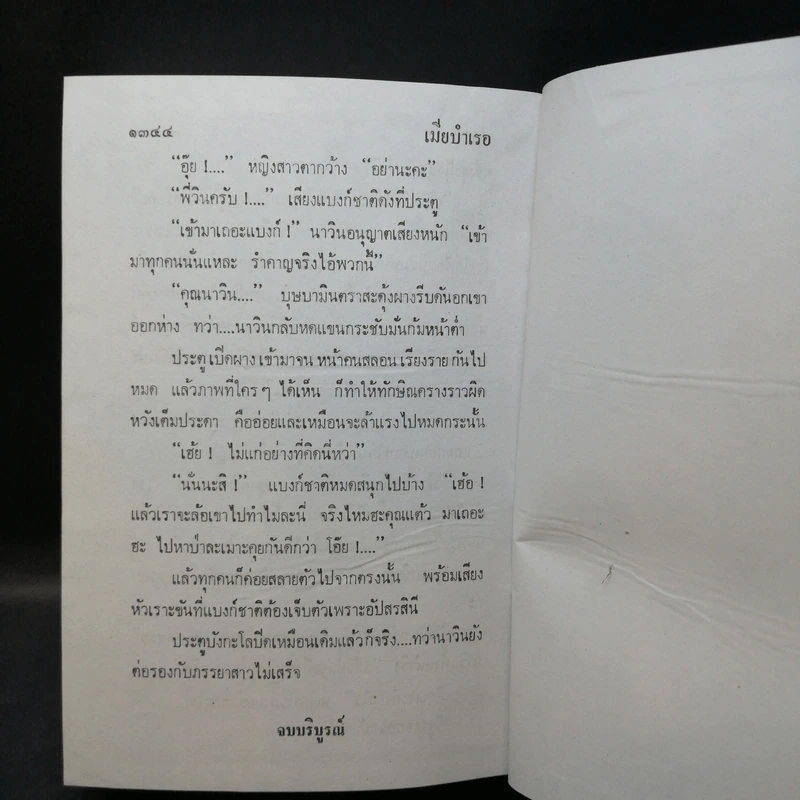 ๑๓๔๔ เมียบำเรอ
“อุ๊ย !....” หญิงสาวตากว้าง “อย่านะคะ”
“พี่วินครับ !....” เสียงแบงก์ชาติดังที่ประตู
“เข้ามาเถอะแบงก์ !” นาวินอนุญาตเสียงหนัก “เข้า
มาทุกคนนั่นแหละ รำคาญจริงไอ้พวกนี้”
“คุณนาวิน....” บุษบามินตราสะดุ้งผางรีบดันอกเขา
ออกห่าง ทว่า....นาวินกลับหดแขนกระชับมั่นก้มหน้าต่ำ
ประตูเปิดผาง เข้ามาจน หน้าคนสลอน เรียงราย กันไป
หมด แล้วภาพที่ใครๆ ได้เห็น ก็ทำให้ทักษิณครางราวผิด
หวังเต็มประดา คืออ่อยและเหมือนจะล้าแรงไปหมดกระนั้น
“เฮ้ย ! ไม่แก่อย่างที่คิดนี่หว่า”
“นั่นนะสิ !” แบงก์ชาติหมดสนุกไปบ้าง “เฮ้อ !
แล้วเราจะล้อเขาไปทำไมละนี่ จริงไหมฮะคุณแต้ว มาเถอะ
ฮะ ไปหาป่าละเมาะคุยกันดีกว่า โอ๊ย !....”
แล้วทุกคนก็ค่อยสลายตัวไปจากตรงนั้น พร้อมเสียง
หัวเราะขันที่แบงก์ชาติต้องเจ็บตัวเพราะอัปสรสินี
ประตูบังกะโลปิดเหมือนเดิมแล้วก็จริง....ทว่านาวินยัง
ต่อรองกับภรรยาสาวไม่เสร็จ
จบบริบูรณ์